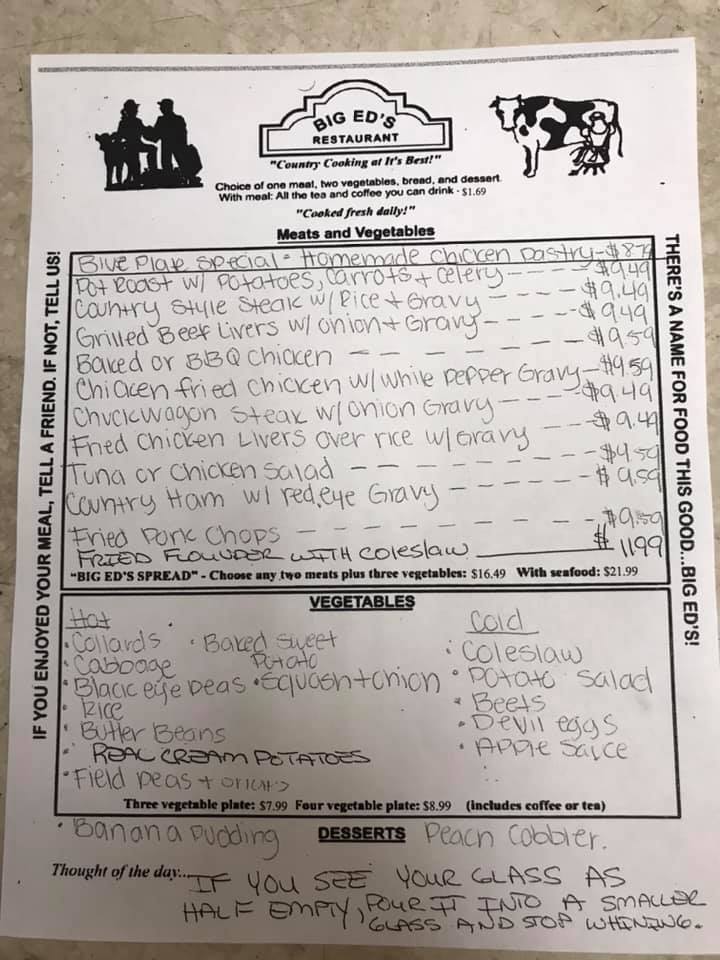 BIG ED'S
RESTAURANT
"Country Cooking at It's Best!"
Choice of one meat, two vegetables, bread, and dessert
With meal: All the tea and coffee you can drink - $1.69
"Cooked fresh daily!"
Meats and Vegetables
Blue Plate Special - Homemade Chicken Pastry - $8.79
Pot Roast w/ Potatoes, Carrots + Celery --- $9.49
Country Style Steak w/ Rice + Gravy --- $9.49
Grilled Beef Livers w/ onion + Gravy --- $9.49
Baked or BBQ Chicken --- $9.59
Chicken fried Chicken w/ white pepper Gravy - $9.59
Chuckwagon Steak w/ Onion Gravy --- $9.49
Fried Chicken Livers over rice w/ Gravy --- $9.49
Tuna or Chicken Salad --- $9.59
Country Ham w/ red eye Gravy --- $9.59
Fried Pork Chops --- $9.59
FRIED FLOUNDER WITH COLESLAW $11.99
"BIG ED'S SPREAD" - Choose any two meats plus three vegetables: $16.49 With seafood: $21.99
IF YOU ENJOYED YOUR MEAL, TELL A FRIEND. IF NOT, TELL US!
THERE'S A NAME FOR FOOD THIS GOOD...BIG ED'S!
VEGETABLES
Hot
• Collards
• Cabbage
• Black eye peas
• Rice
• Butter Beans
• REAL CREAM POTATOES
• Field peas +
• Baked sweet
Potato
• Squash + Onion
Cold
• Coleslaw
• Potato Salad
• Beets
• Devil eggs
• Apple Sauce
Three vegetable plate: $7.99 Four vegetable plate: $8.99 (includes coffee or tea)
• Banana Pudding DESSERTS Peach Cobbler.
Thought of the day... IF YOU SEE YOUR GLASS AS
HALF EMPTY, POUR IT INTO A SMALLER
GLASS AND STOP WHINING.